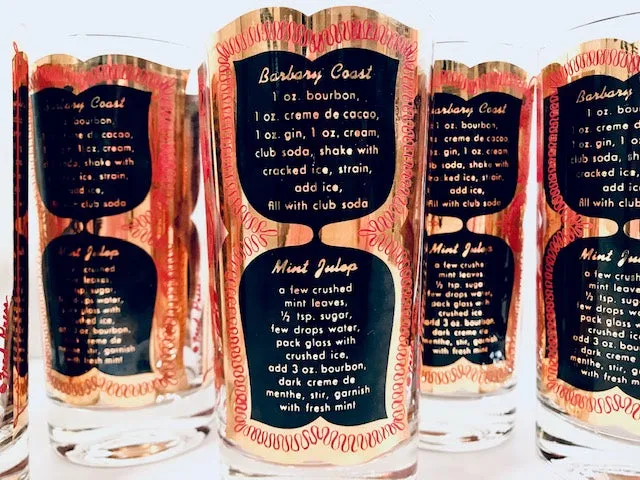 Barbary Coast
1 oz. bourbon,
1 oz. creme de cacao,
1 oz. gin, 1 oz. cream,
club soda, shake with
cracked ice, strain,
add ice,
fill with club soda
Mint Julep
a few crushed
mint leaves,
½ tsp. sugar,
few drops water,
pack glass with
crushed ice,
add 3 oz. bourbon,
dark creme de
menthe, stir, garnish
with fresh mint
Barbary Coast
bourbon,
de cacao,
oz. cream,
soda, shake with
ice, strain,
add ice,
with club soda
Mint Julep
a few crushed
mint leaves,
½ tsp. sugar,
drops water,
glass with
ice,
oz. bourbon,
creme de
menthe, stir, garnish
with fresh mint
Barbary Coast
oz. bourbon,
oz. creme de cacao,
gin, 1 oz. cream,
soda, shake with
ice, strain,
add ice,
with club soda
Mint Julep
a few crushed
mint leaves,
½ tsp. sugar,
few drops water,
pack glass with
crushed ice,
add 3 oz. bourbon,
dark creme de
menthe, stir, garnish
with fresh mint
Barbary
1 oz. bour
1 oz. creme d
1 oz. gin, 1 oz.
club soda, shak
cracked ice, s
add ice
fill with club
Mint Julep
a few crushed
mint leaves,
½ tsp. sugar,
few drops wate
pack glass with
crushed ice,
add 3 oz. bourbo
dark creme de
menthe, stir, garni
with fresh mint